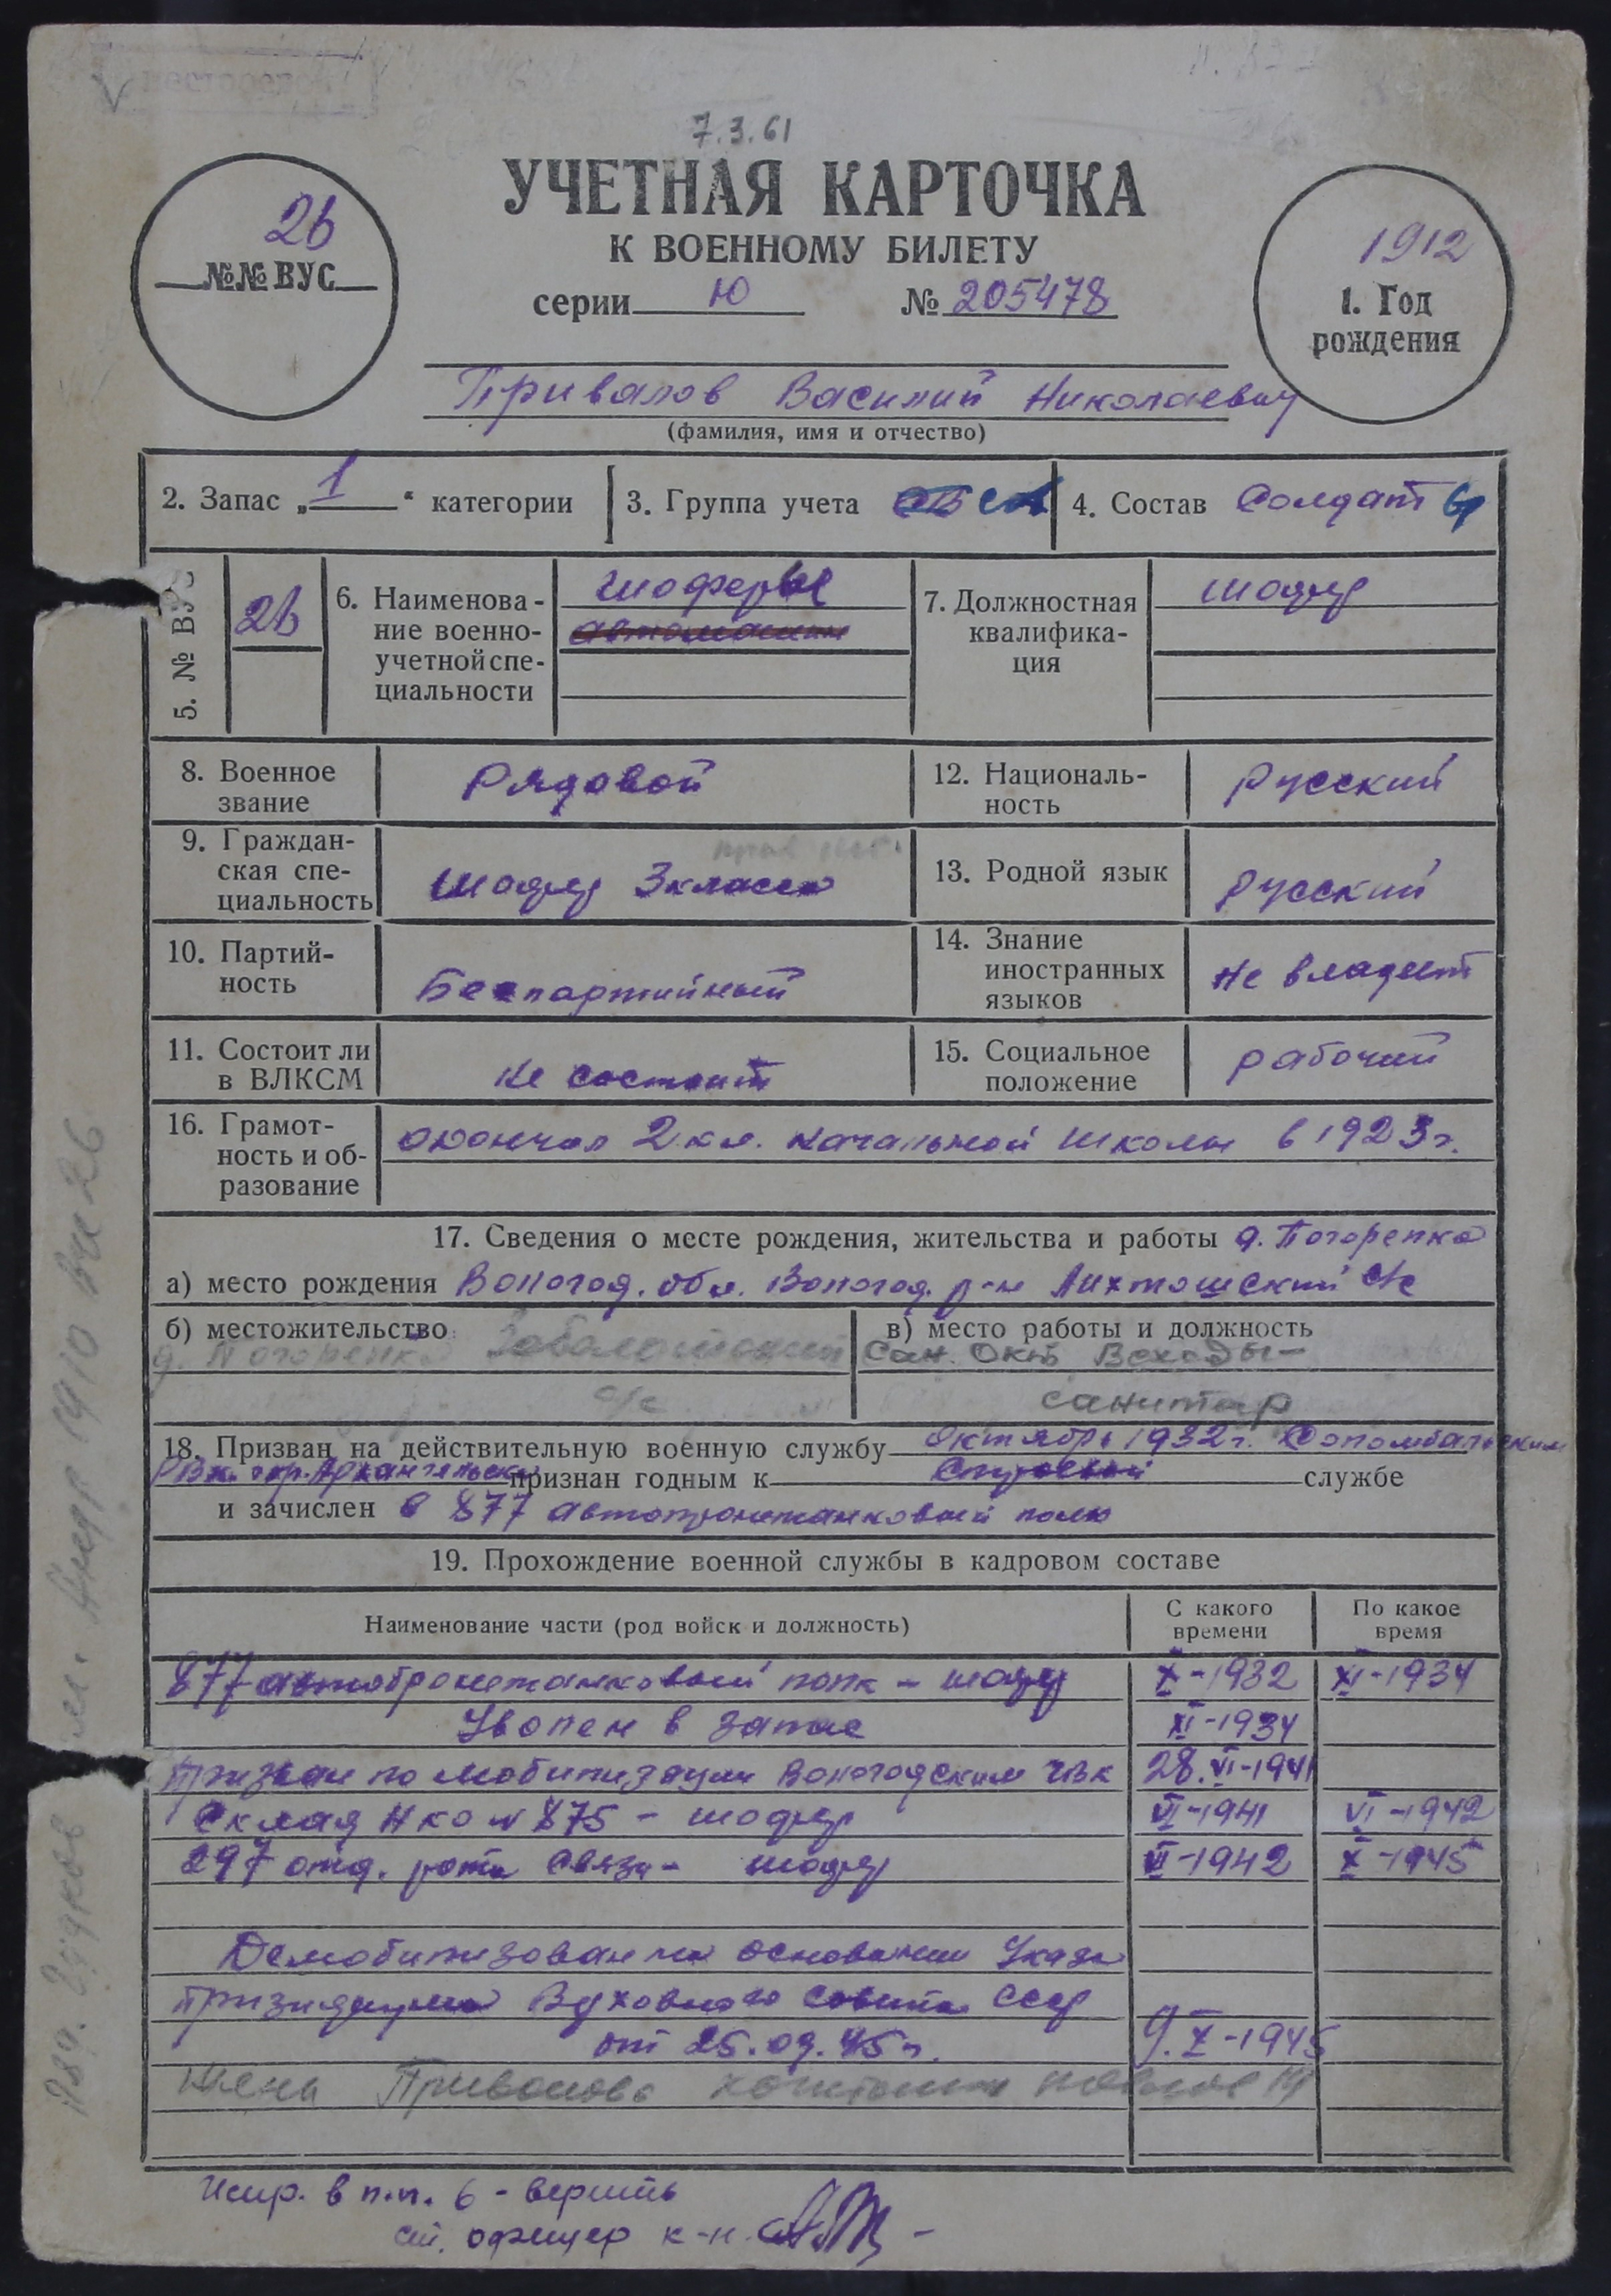 7.3.61
УЧЕТНАЯ КАРТОЧКА
К ВОЕННОМУ БИЛЕТУ
серии Ю № 205478
26
№№ ВУС
1912
1. Год
рождения
Привалов Василий Николаевич
(фамилия, имя и отчество)
2. Запас „1“ категории
3. Группа учета
4. Состав Солдат
5. № ВУС
26
6. Наименова-
ние военно-
учетной спе-
циальности
шоферы
7. Должностная
квалифика-
ция
шофер
8. Военное
звание
Рядовой
12. Националь-
ность
Русский
9. Граждан-
ская спе-
циальность
Шофер 3 класса
13. Родной язык
Русский
10. Партий-
ность
Беспартийный
14. Знание
иностранных
языков
Не владеет
11. Состоит ли
в ВЛКСМ
Не состоит
15. Социальное
положение
рабочий
16. Грамот-
ность и об-
разование
окончил 2 кл. начальной школы в 1923 г.
17. Сведения о месте рождения, жительства и работы д. Погорелка
а) место рождения Вологод. обл. Вологод. р-н Лихтошский с/с
б) местожительство
д. Погорелка
с/с
в) место работы и должность
санитар
18. Призван на действительную военную службу октябрь 1932 г. Соломбальским
РВк. гор. Архангельска признан годным к строевой службе
и зачислен в 877 автобронетанковый полк
19. Прохождение военной службы в кадровом составе
Наименование части (род войск и должность)
С какого
времени
По какое
время
877 автобронетанковый полк – шофер X-1932 XI-1934
Уволен в запас XI-1934
Призван по мобилизации Вологодским ГВк 28.VI-1941
Склад Нко № 875 – шофер VI-1941 VI-1942
297 отд. рота связи – шофер VI-1942 X-1945
Демобилизован на основании Указа
Призидиума Верховного Совета СССР
от 25.09.45 г. 9.X-1945
жена Привалова
Испр. в п.п. 6 - верить
ст. офицер к-н.